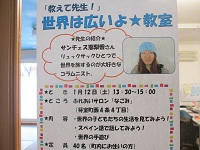 「教えて先生！」
世界は広いよ★教室
★先生の紹介★
サンチェス恵梨香さん
リュックサックひとつで
世界を旅するのが大好きな
コラムニスト。
★と き：1月12日（土）13:30~15:00
★ところ：ふれあいサロン「なごみ」
★内 容：・世界の子どもたちの生活を見てみよう！
・スペイン語で話してみよう！
・世界の手遊び
★定 員：40名（町内にお住いの方）